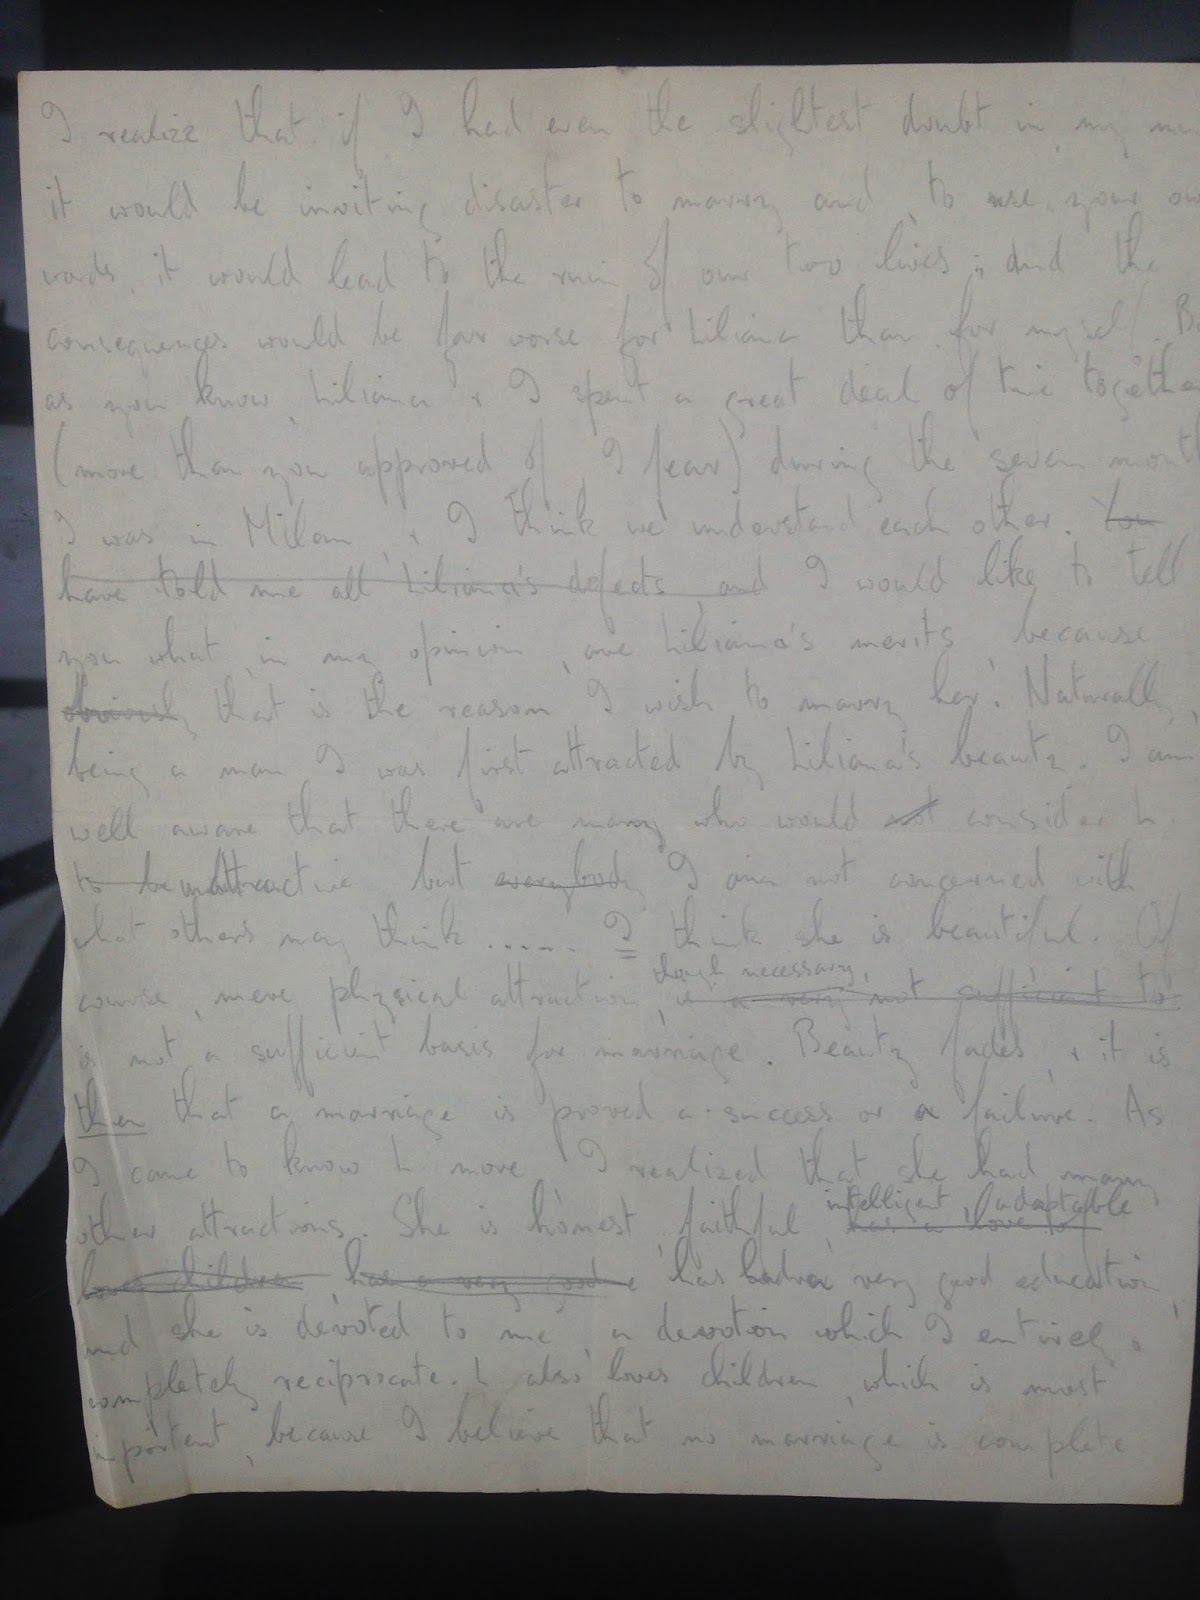 I realize that if I had even the slightest doubt in my
it would be inviting disaster to marry and, to use your
words, it would lead to the ruin of our two lives; and the
consequences would be far worse for Liliana than for myself. 
as you know, Liliana + I spent a great deal of time together
(more than you approved of, I fear) during the seven month
I was in Milan, + I think we understand each other. You
have told me all Liliana's defects, and I would like to tell
you what, in my opinion, are Liliana's merits, because
obviously that is the reason I wish to marry her. Naturally,
being a man, I was first attracted by Liliana's beauty. I am
well aware that there are many who would not consider L.
to be unattractive but everybody I am not concerned with
what others may think ...... I think she is beautiful. Of
though necessary,
course, mere physical attraction, is a very not sufficient to
is not a sufficient basis for marriage. Beauty fades, + it is
then that a marriage is proved a success or a failure. As
I came to know L more I realized that she had many
intelligent, adaptable
other attractions. She is honest, faithful, has a love for
loves children, has a very good has had a very good education
and she is devoted to me, a devotion which I entirely
completely reciprocate. L also loves children, which is most
important, because I believe that no marriage is complete